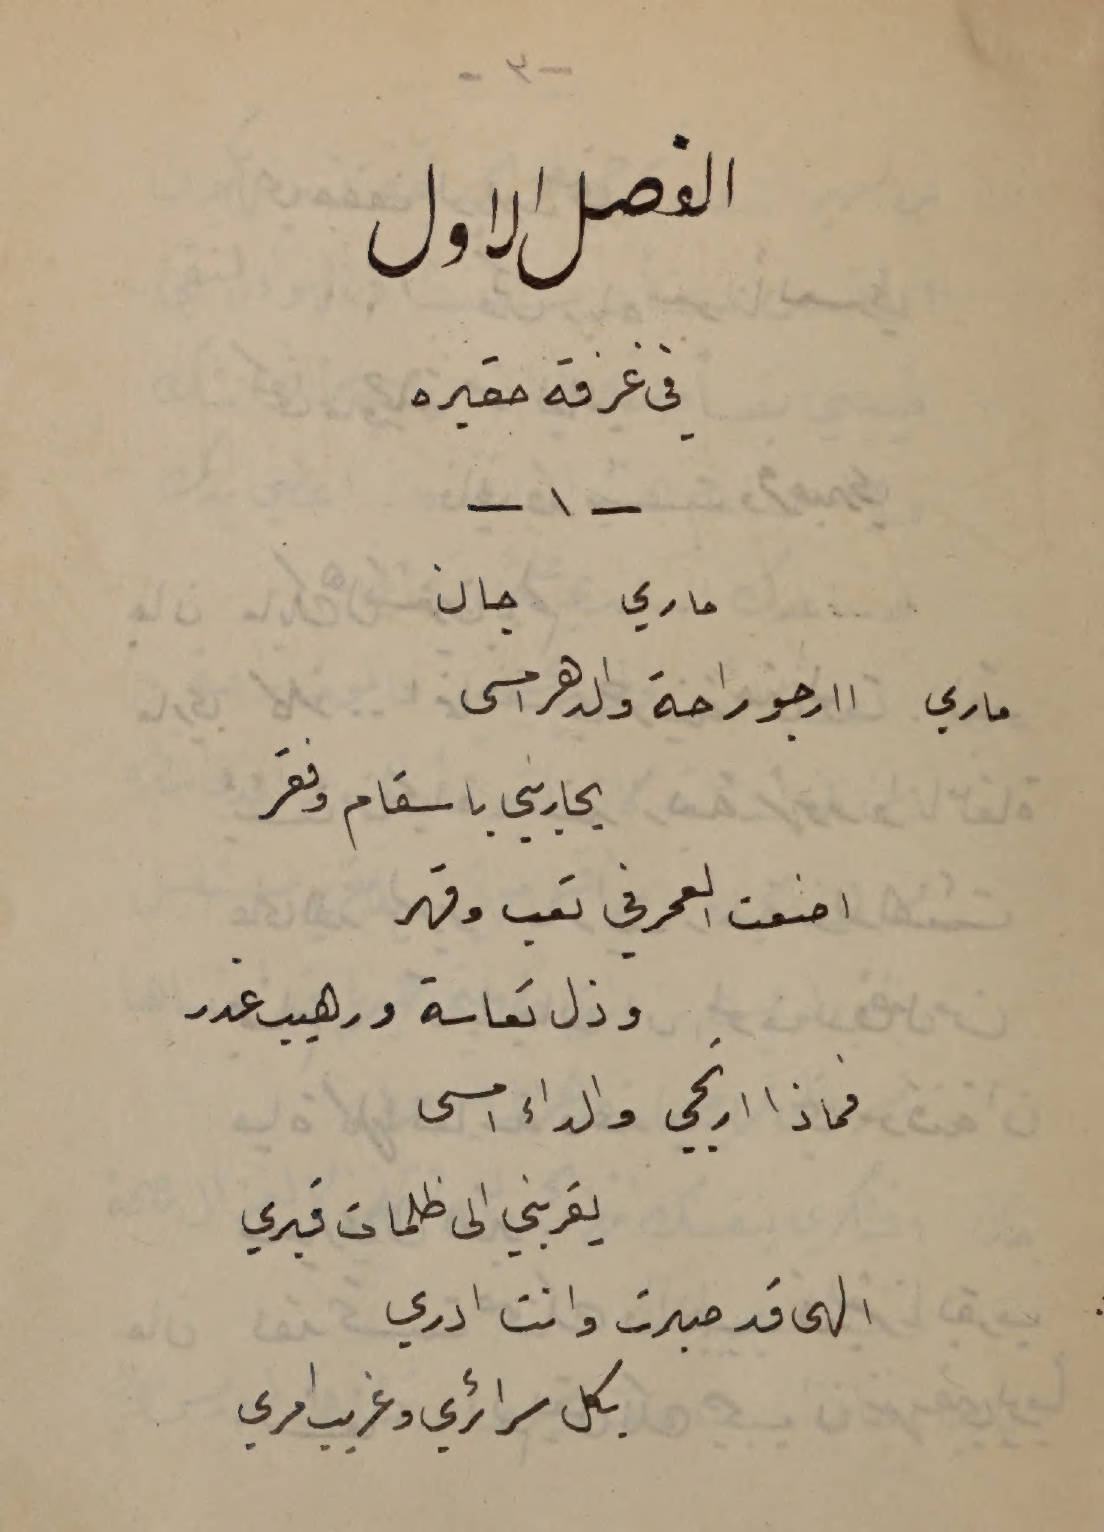 الفصل الاول
في غرفة حقيره
— ١ —
ماري جان
ماري اارجو راحة والدهر امسى
يحاربني باسقام وفقر
اضعت العمر في تعب وقهر
وذل تعاسة ورهيب غدر
فماذا ارتجي والداء امسى
يقربني الى ظلمات قبري
الهى قد صبرت وانت ادرى
بكل سرائري وغريب امري